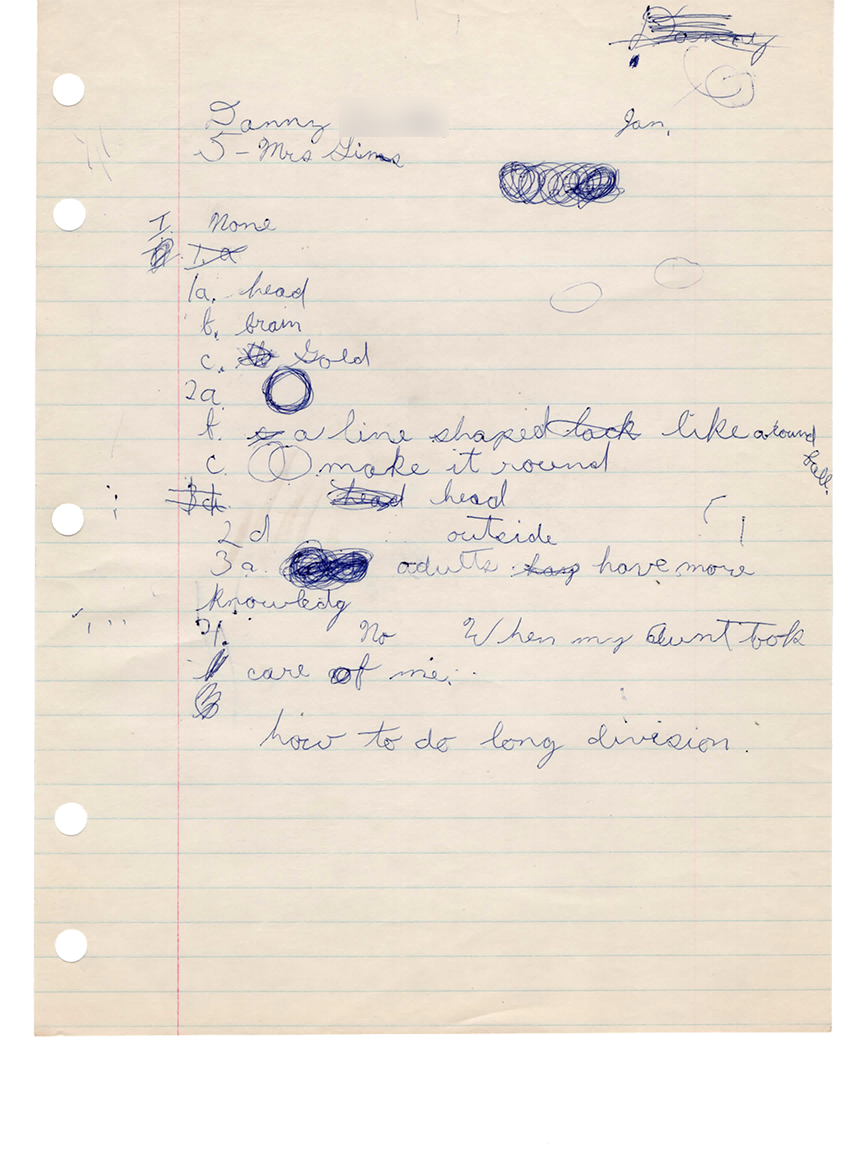 Danny
Danny Jan.
5 - Mrs Sims
I. None
1. a
1a. head
b. brain
c. Gold
2a.
b. a line shaped back like around ball.
c. make it round
3a head head
2 d outside
3 a. adults hav have more
knowledg
4. No When my aunt took
care of me.
how to do long division.